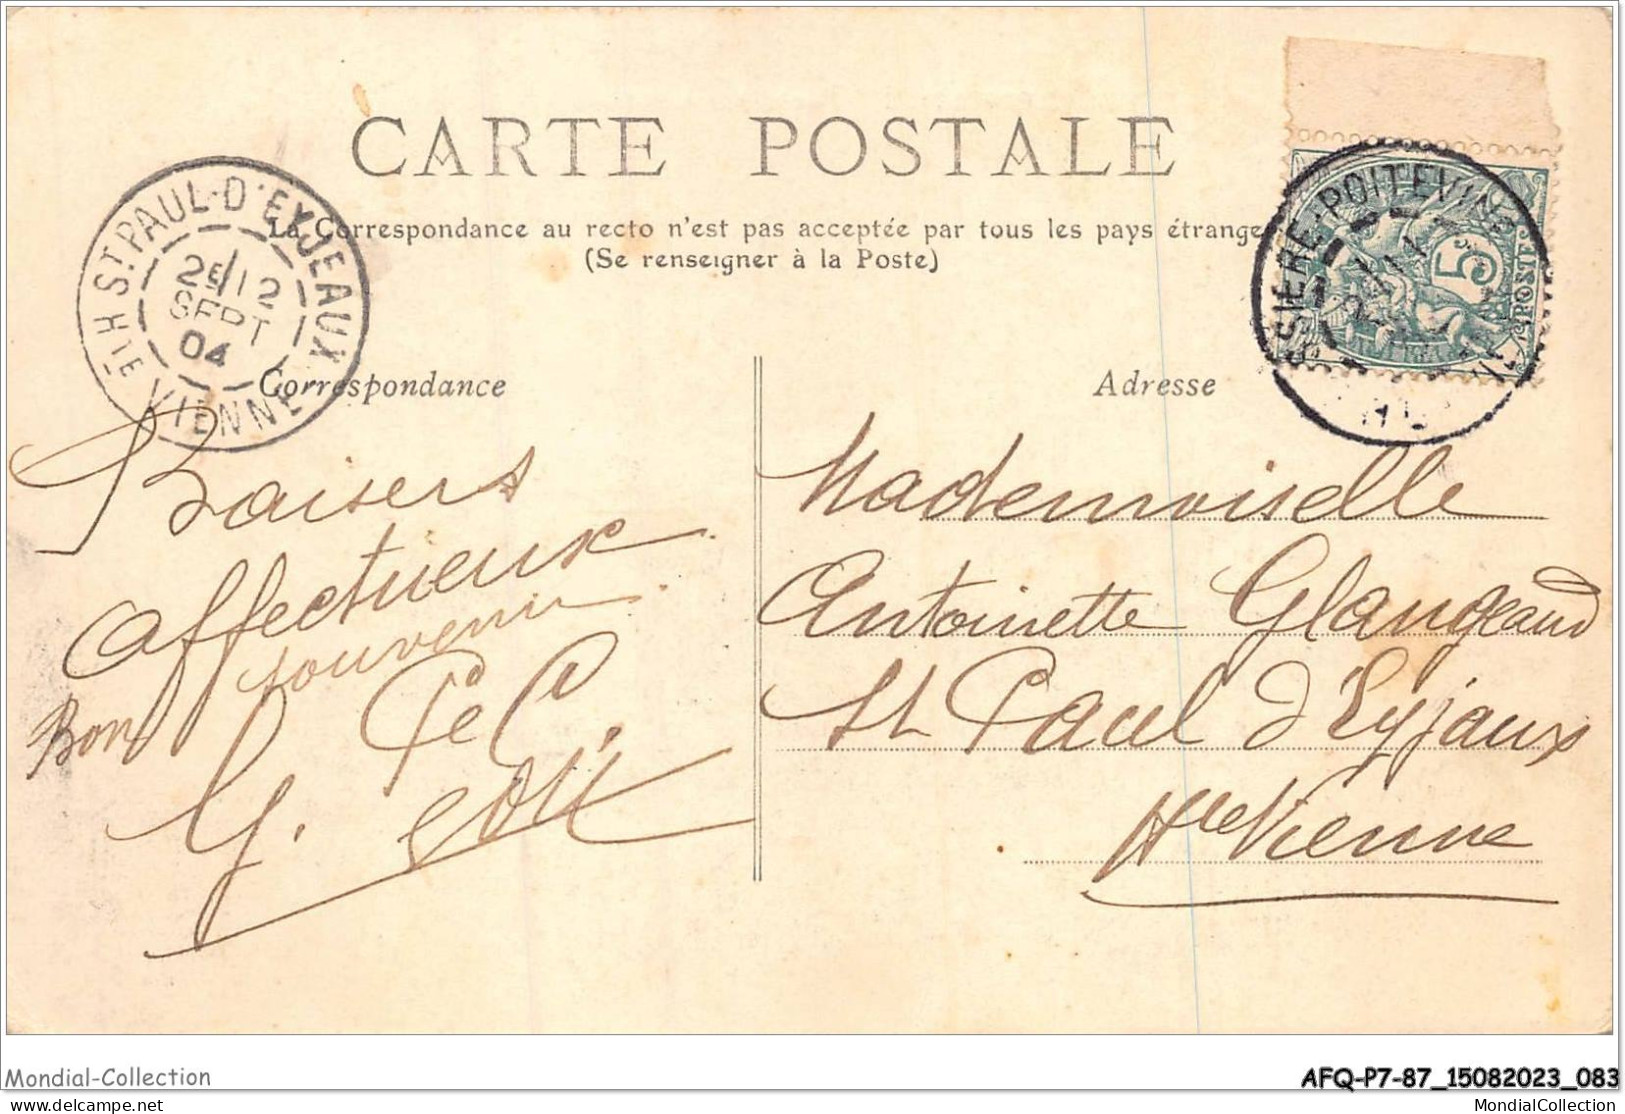 CARTE POSTALE
La Correspondance au recto n'est pas acceptée par tous les pays étrange
(Se renseigner à la Poste)
ST PAUL-D'EYJEAUX
2E/12
SEPT
04
HTE VIENNE
SSIERE-POITEVINE
5
POSTES
Correspondance
Adresse
Baisers
affectueux
Bon souvenir
G.
Mademoiselle
Antoinette Glangeaud
St Paul d'Eyjaux
Hte Vienne
Mondial-Collection
AFQ-P7-87_15082023_083
delcampe.net
MondialCollection